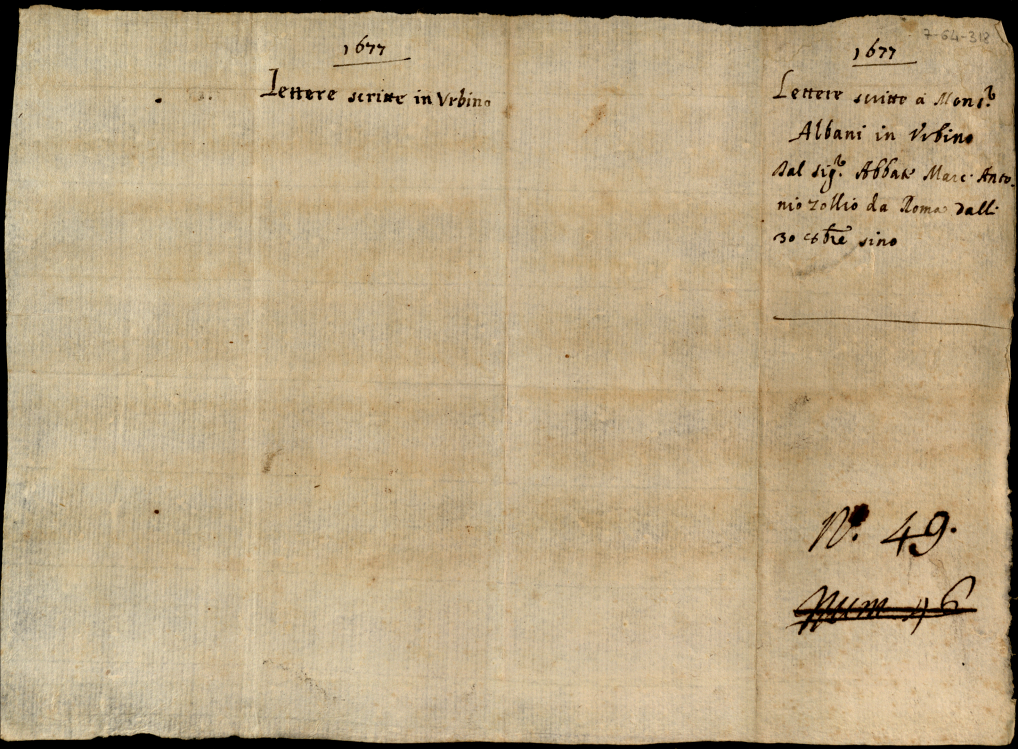 1677
Lettere scritte in Urbino
7-64-318
1677
Lettere scritte à Monsr.
Albani in Urbino
Dal sigr. Abbate Marc' Anto-
nio Zollio da Roma dalli
30 8bre sino
N.º 49.
Num 46